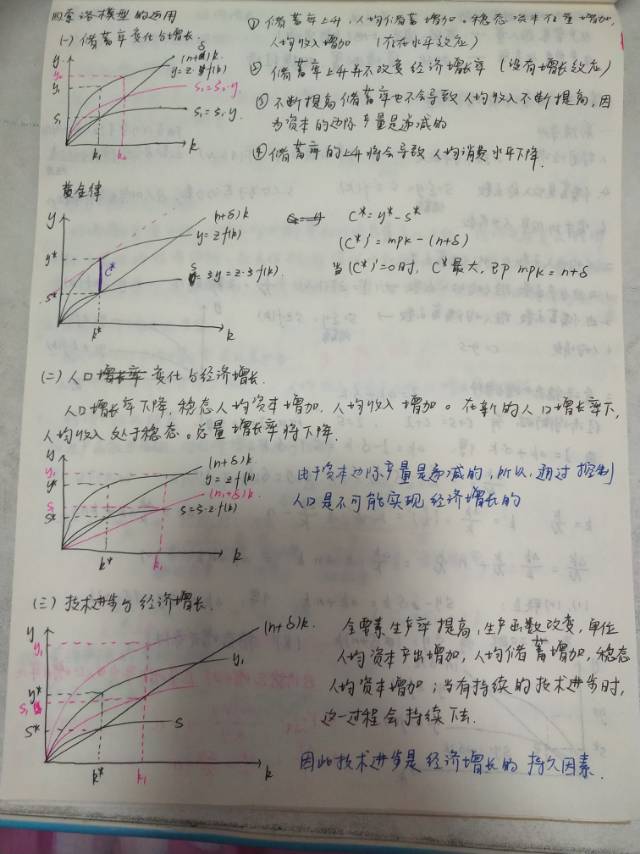 四 索洛模型的运用
(一) 储蓄率变化与增长.
① 储蓄率上升, 人均储蓄增加. 稳态资本存量增加,
人均收入增加 (存在水平效应)
② 储蓄率上升并不改变经济增长率 (没有增长效应)
③ 不断提高储蓄率也不会导致人均收入不断提高, 因
为资本的边际产量是递减的
④ 储蓄率的上升将会导致人均消费水平下降.
y
(n+δ)k
y=z·f(k)
s₂=s₂·y
s₁=s₁·y
y₁
s₁
k₁
k₂
k
黄金律
y
(n+δ)k
y=zf(k)
y=z·f(k).
y*
s*
C*
k*
k
C*=y*-s*
(C*)'=mpk-(n+δ)
当(C*)'=0时, C*最大, 即 mpk=n+δ
(二) 人口变化与经济增长.
人口增长率下降, 稳态人均资本增加, 人均收入增加。在新的人口增长率下,
人均收入处于稳态。总量增长率将下降.
y
y₁
y*
s₁
s*
(n+δ)k
y=zf(k)
(n₁+δ)k
s=s·zf(k)
k*
k₁
k
由于资本边际产量是递减的, 所以, 通过控制
人口是不可能实现经济增长的
(三) 技术进步与经济增长.
y
y₁
y*
s₁
s*
(n+δ)k.
y₁
s
k*
k₁
k
全要素生产率提高, 生产函数改变, 单位
人均资本产出增加, 人均储蓄增加, 稳态
人均资本增加; 当有持续的技术进步时,
这一过程会持续下去.
因此技术进步是经济增长的持久因素.